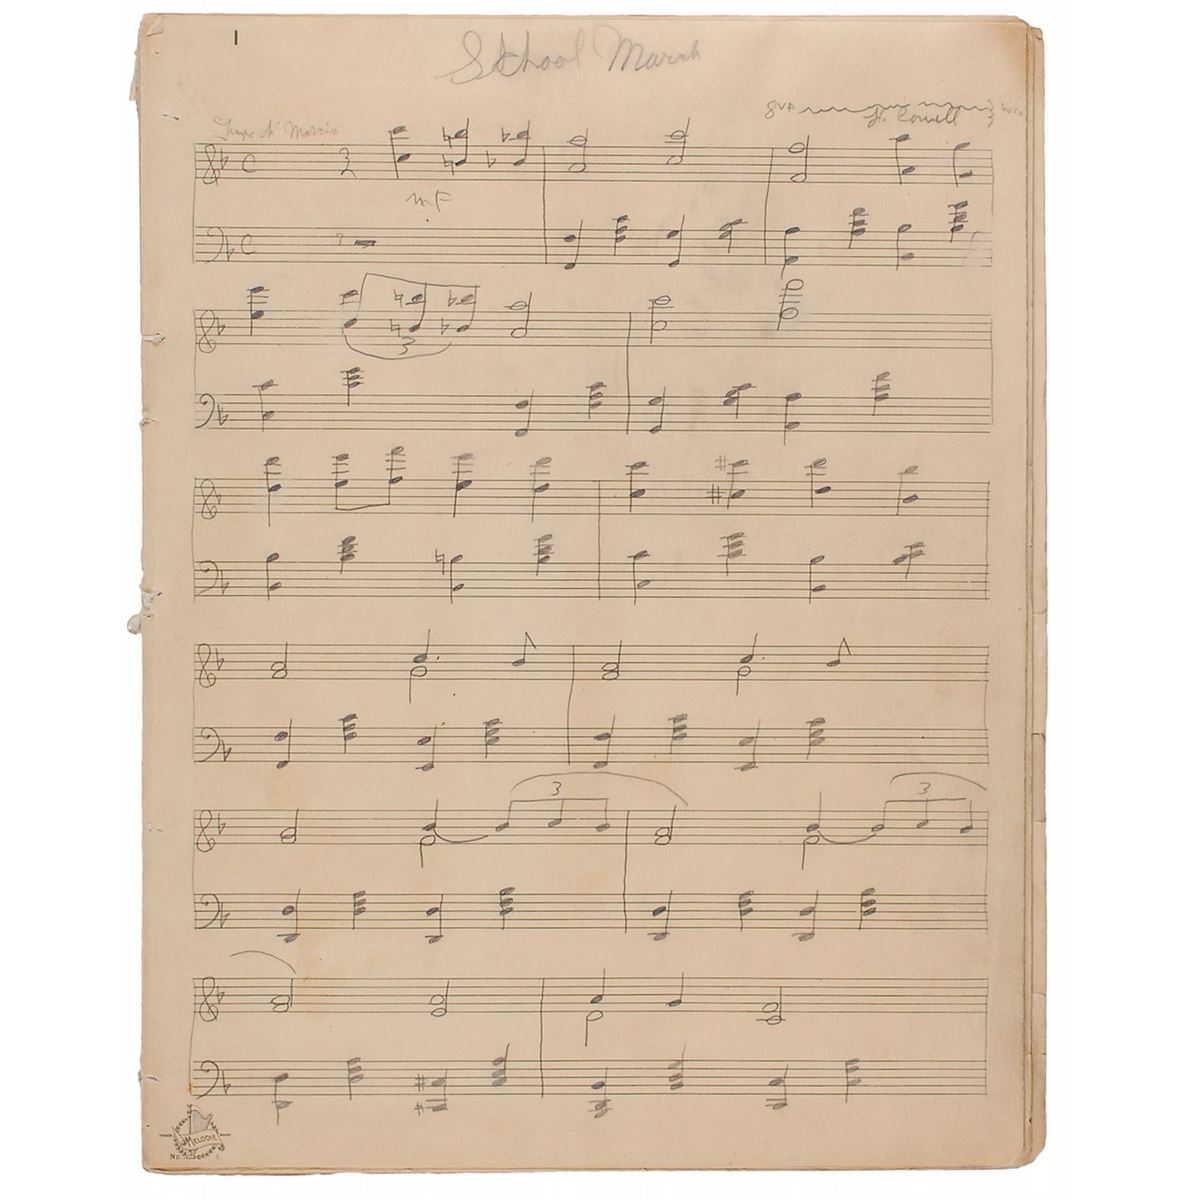 1
School March
8va loco
Tempo di Marcia H. Cowell
mF
3
3
3
TRADE MELODIE MARK
NO 1